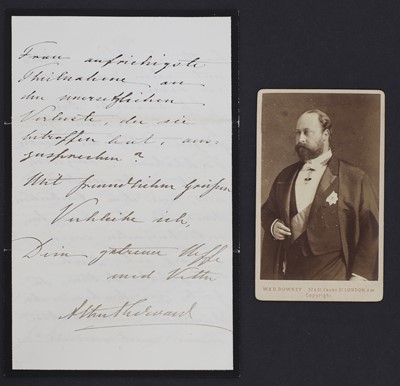 Frau aufrichtigste
Theilnahme an
den unersetzlichen
Verluste, der sie
betroffen hat, aus-
zusprechen?
Mit freundlichen Grüßen
Verbleibe ich,
Dein getreuer Neffe
und Vetter
W. & D. DOWNEY
LONDON
Copyright